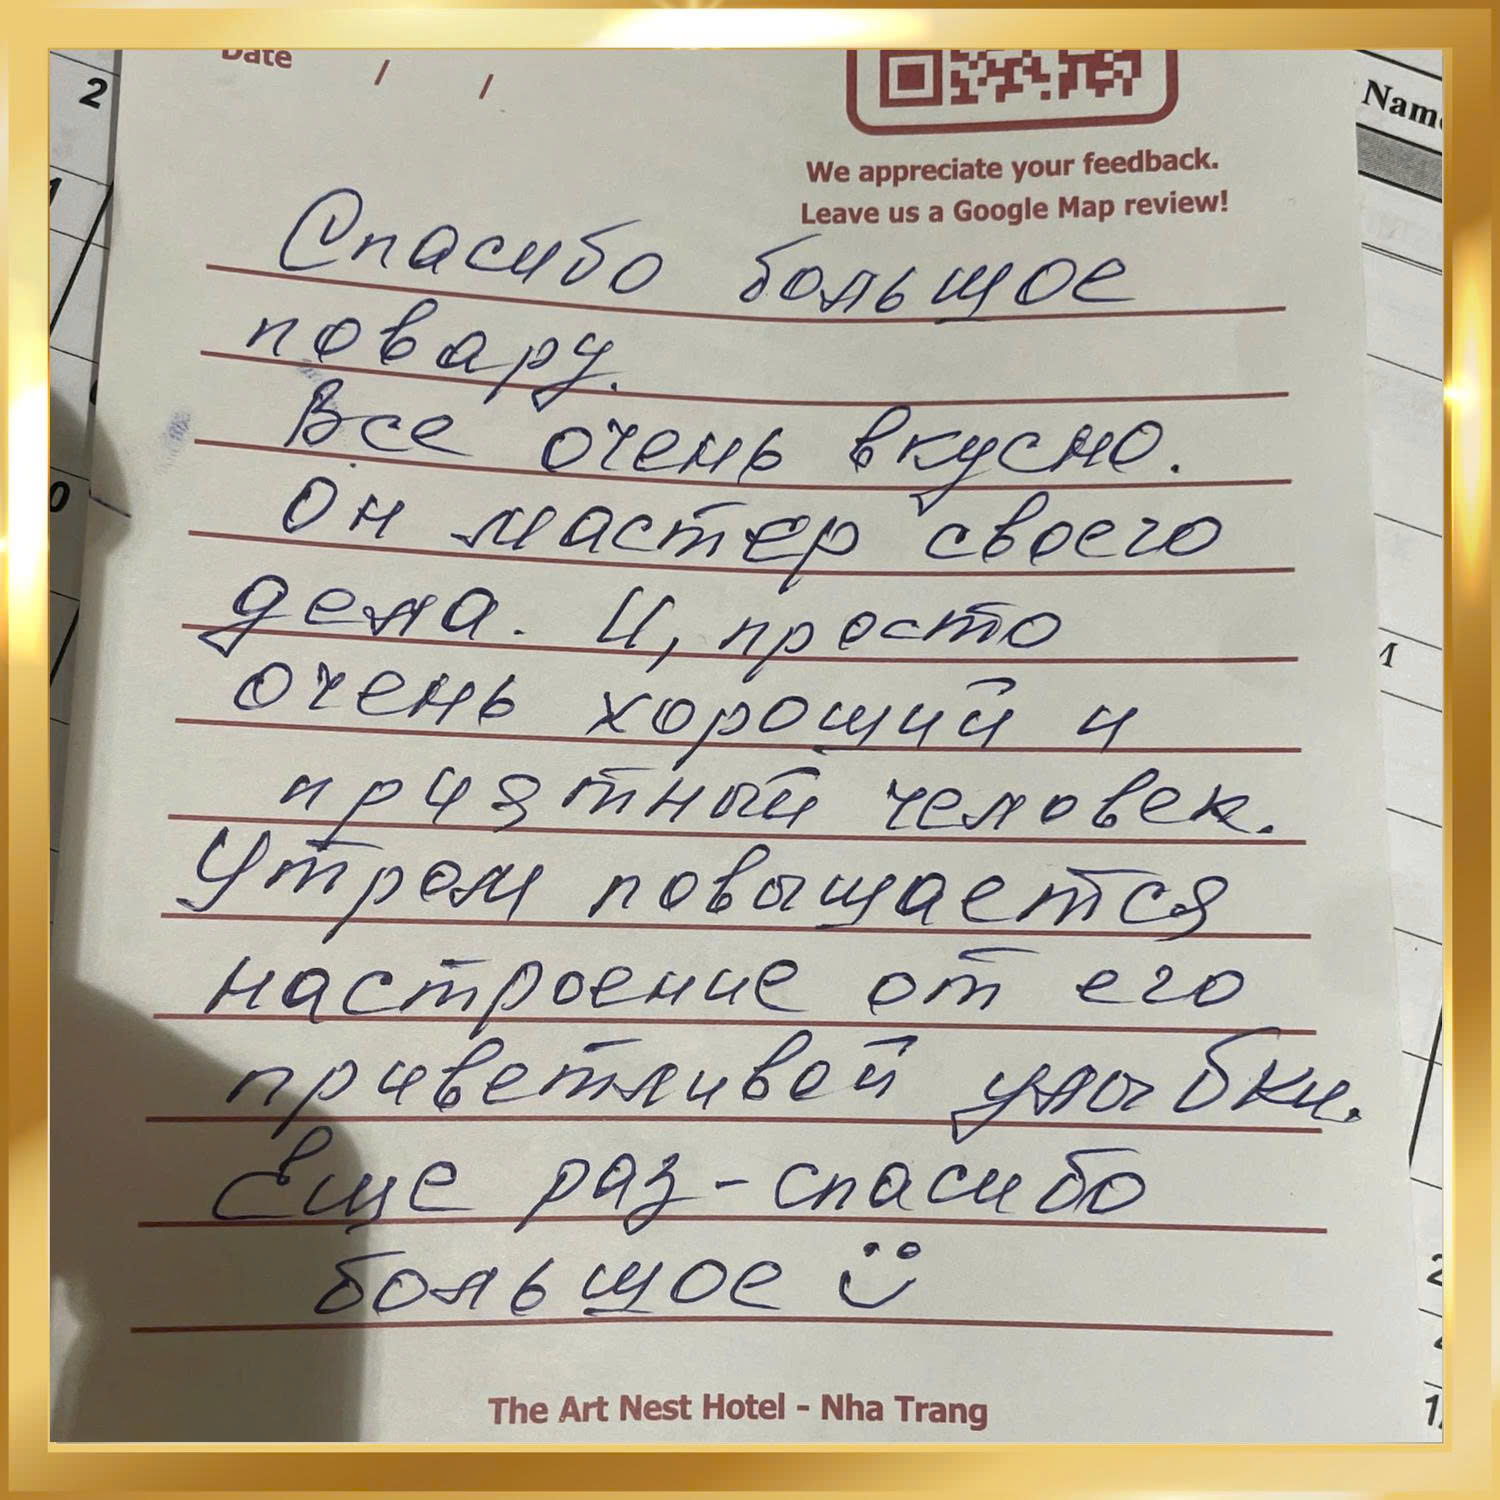 Date / /
We appreciate your feedback.
Leave us a Google Map review!
Спасибо большое
повару.
Все очень вкусно.
Он мастер своего
дела. И, просто
очень хороший и
приятный человек.
Утром повышается
настроение от его
приветливой улыбки.
Еще раз - спасибо
большое
The Art Nest Hotel - Nha Trang
2
Name